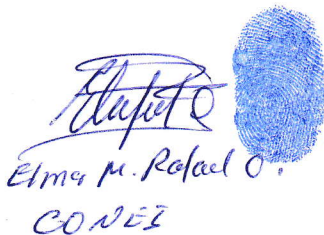 Elmer M. Rafael O.
CONEI